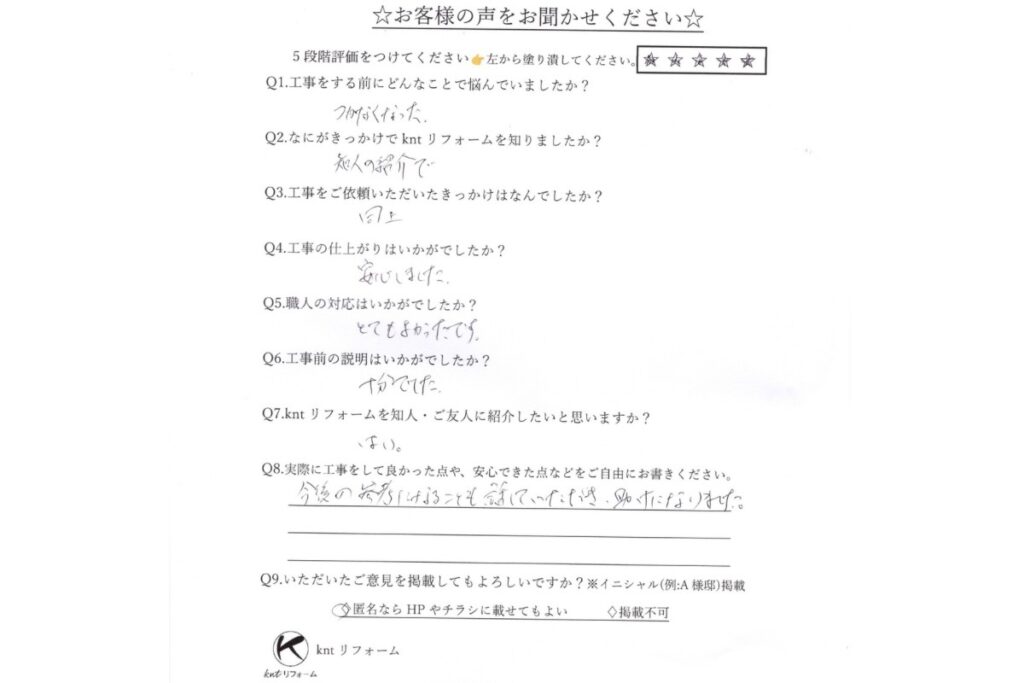 ☆お客様の声をお聞かせください☆
5段階評価をつけてください👉左から塗り潰してください。★★★★★
Q1.工事をする前にどんなことで悩んでいましたか？
つかなくなった.
Q2.なにがきっかけでkntリフォームを知りましたか？
知人の紹介で
Q3.工事をご依頼いただいたきっかけはなんでしたか？
同上
Q4.工事の仕上がりはいかがでしたか？
安心しました.
Q5.職人の対応はいかがでしたか？
とてもよかったです.
Q6.工事前の説明はいかがでしたか？
十分でした.
Q7.kntリフォームを知人・ご友人に紹介したいと思いますか？
はい。
Q8.実際に工事をして良かった点や、安心できた点などをご自由にお書きください。
今後の参考になることも話していただき、助けになりました。
Q9.いただいたご意見を掲載してもよろしいですか？※イニシャル(例:A様邸)掲載
◇匿名ならHPやチラシに載せてもよい ◇掲載不可
K kntリフォーム
kntリフォーム